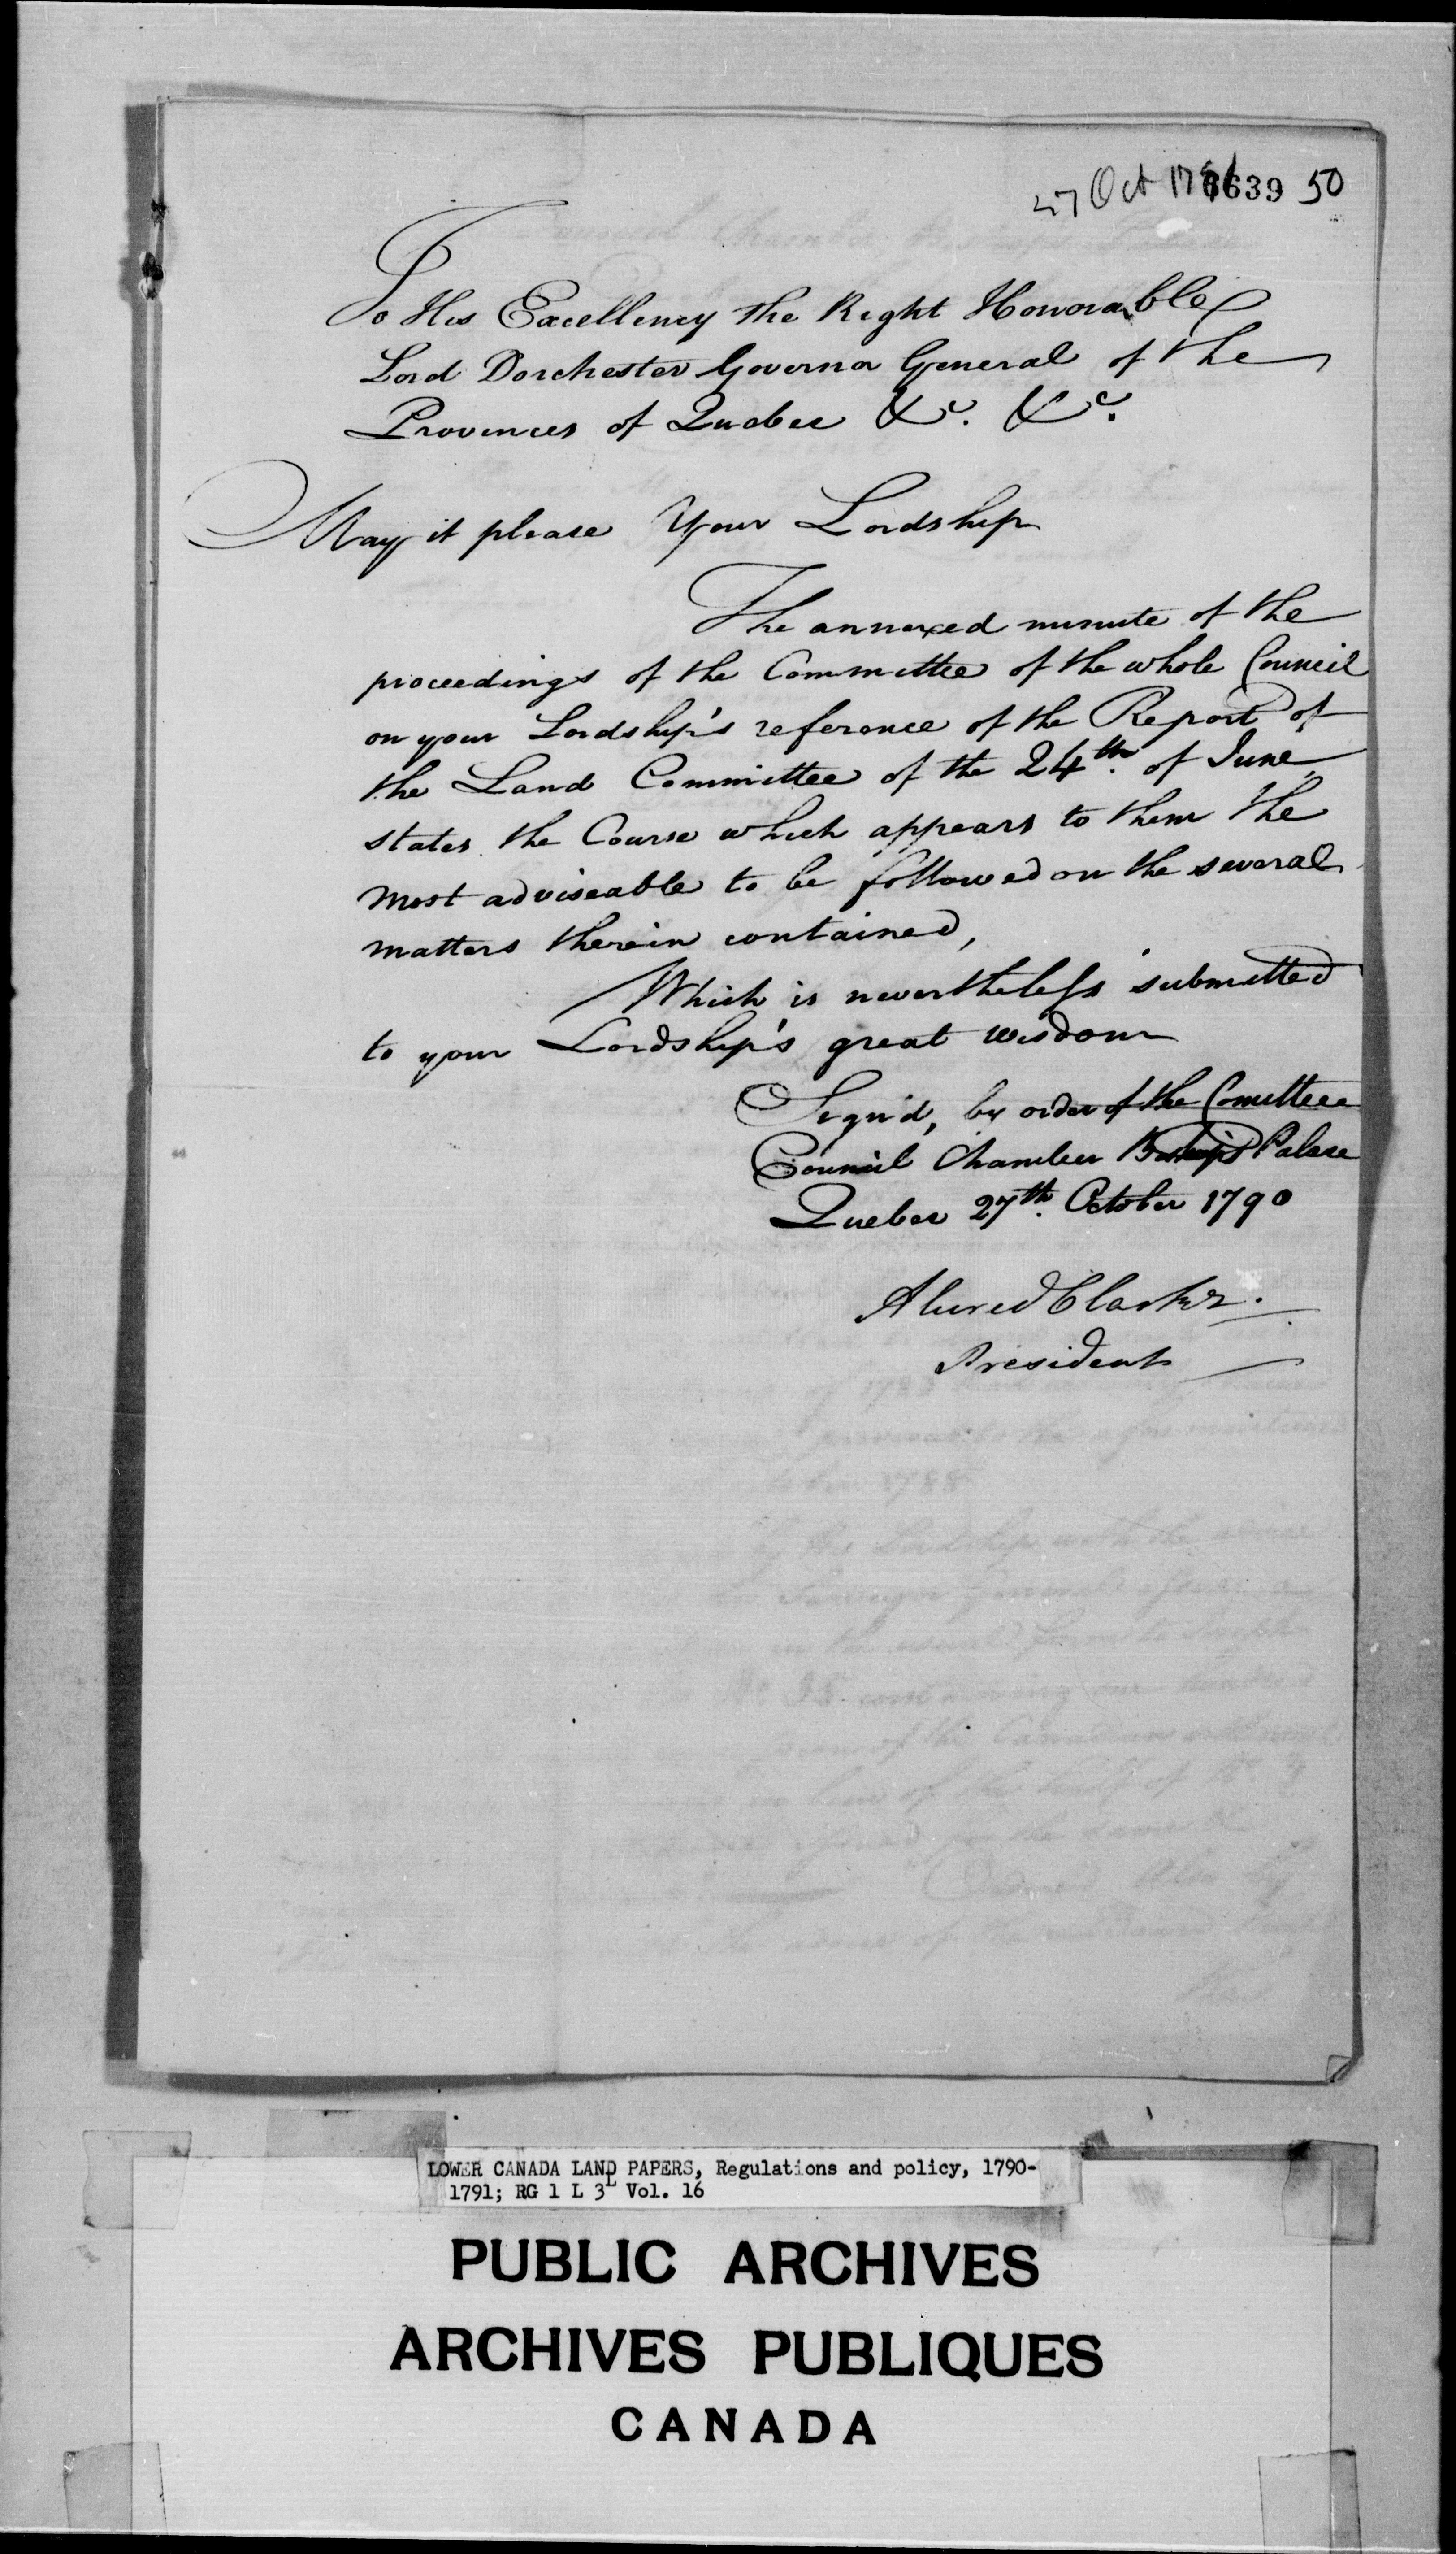 27 Oct 1639 50
To His Excellency the Right Honorable
Lord Dorchester Governor General of the
Provinces of Quebec &c. &c.
May it please Your Lordship
The annexed minute of the
proceedings of the Committee of the whole Council
on your Lordship's reference of the Report of
the Land Committee of the 24th. of June,
states the Course which appears to them the
most adviseable to be followed on the several
matters therein contained,
Which is nevertheless submitted
to your Lordship's great wisdom
Sign'd, by order of the Comittee
Council Chamber Bishop's Palace
Quebec 27th. October 1790
Alured Clarke.
President
LOWER CANADA LAND PAPERS, Regulations and policy, 1790-
1791; RG 1 L 3L Vol. 16
PUBLIC ARCHIVES
ARCHIVES PUBLIQUES
CANADA